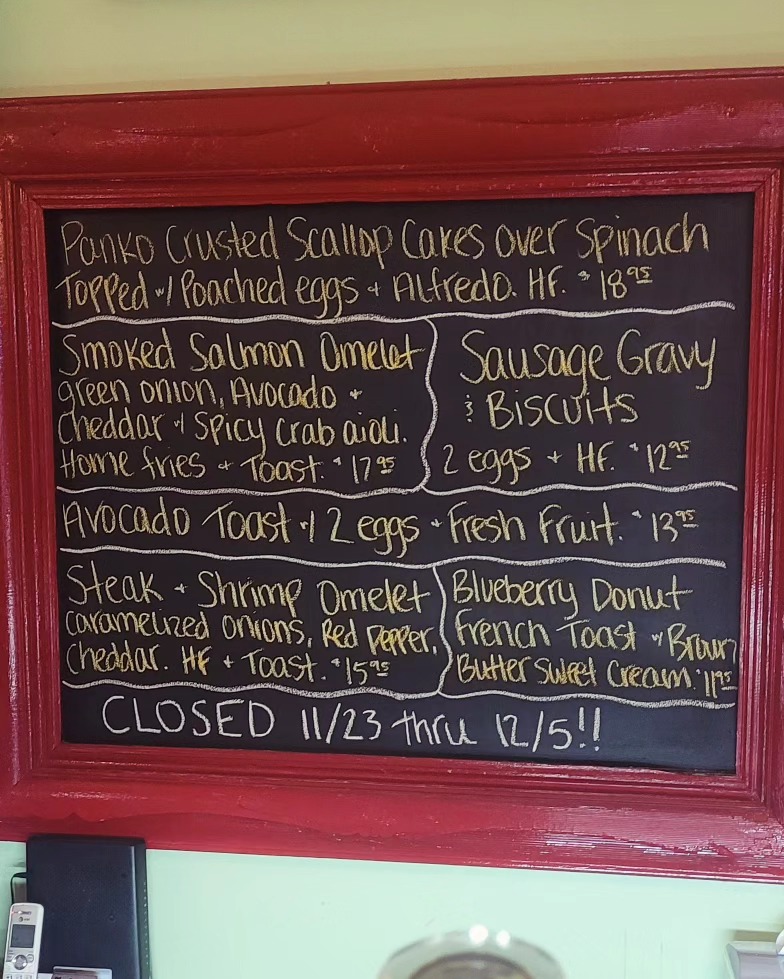 Panko Crusted Scallop Cakes over Spinach
Topped w/ Poached eggs + Alfredo. HF. $18.95
Smoked Salmon Omelet
green onion, Avocado +
Cheddar w/ Spicy Crab aioli.
Home fries + Toast. $17.95
Sausage Gravy
& Biscuits
2 eggs + HF. $12.95
Avocado Toast w/ 2 eggs + Fresh Fruit. $13.95
Steak + Shrimp Omelet
caramelized onions, Red Pepper,
Cheddar. HF + Toast. $15.95
Blueberry Donut
French Toast w/ Brown
Butter Sweet Cream. $11.95
CLOSED 11/23 thru 12/5!!